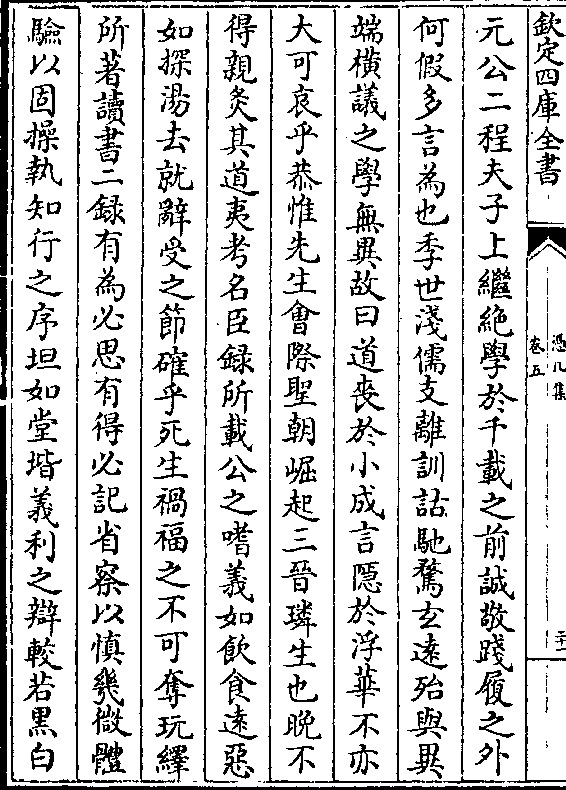 欽定四庫全書
憑几集
卷五
元公二程夫子上繼絶學於千載之前誠敬踐履之外
何假多言為也季世淺儒支離訓詁馳騖玄遠殆與異
端横議之學無異故曰道喪於小成言隱於浮華不亦
大可哀乎恭惟先生會際聖朝崛起三晉璘生也晚不
得親炙其道夷考名臣録所載公之嗜義如飲食遠惡
如探湯去就辭受之節確乎死生禍福之不可奪玩繹
所著讀書二録有為必思有得必記省察以慎幾微體
驗以固操執知行之序坦如堂堦義利之辯較若黑白